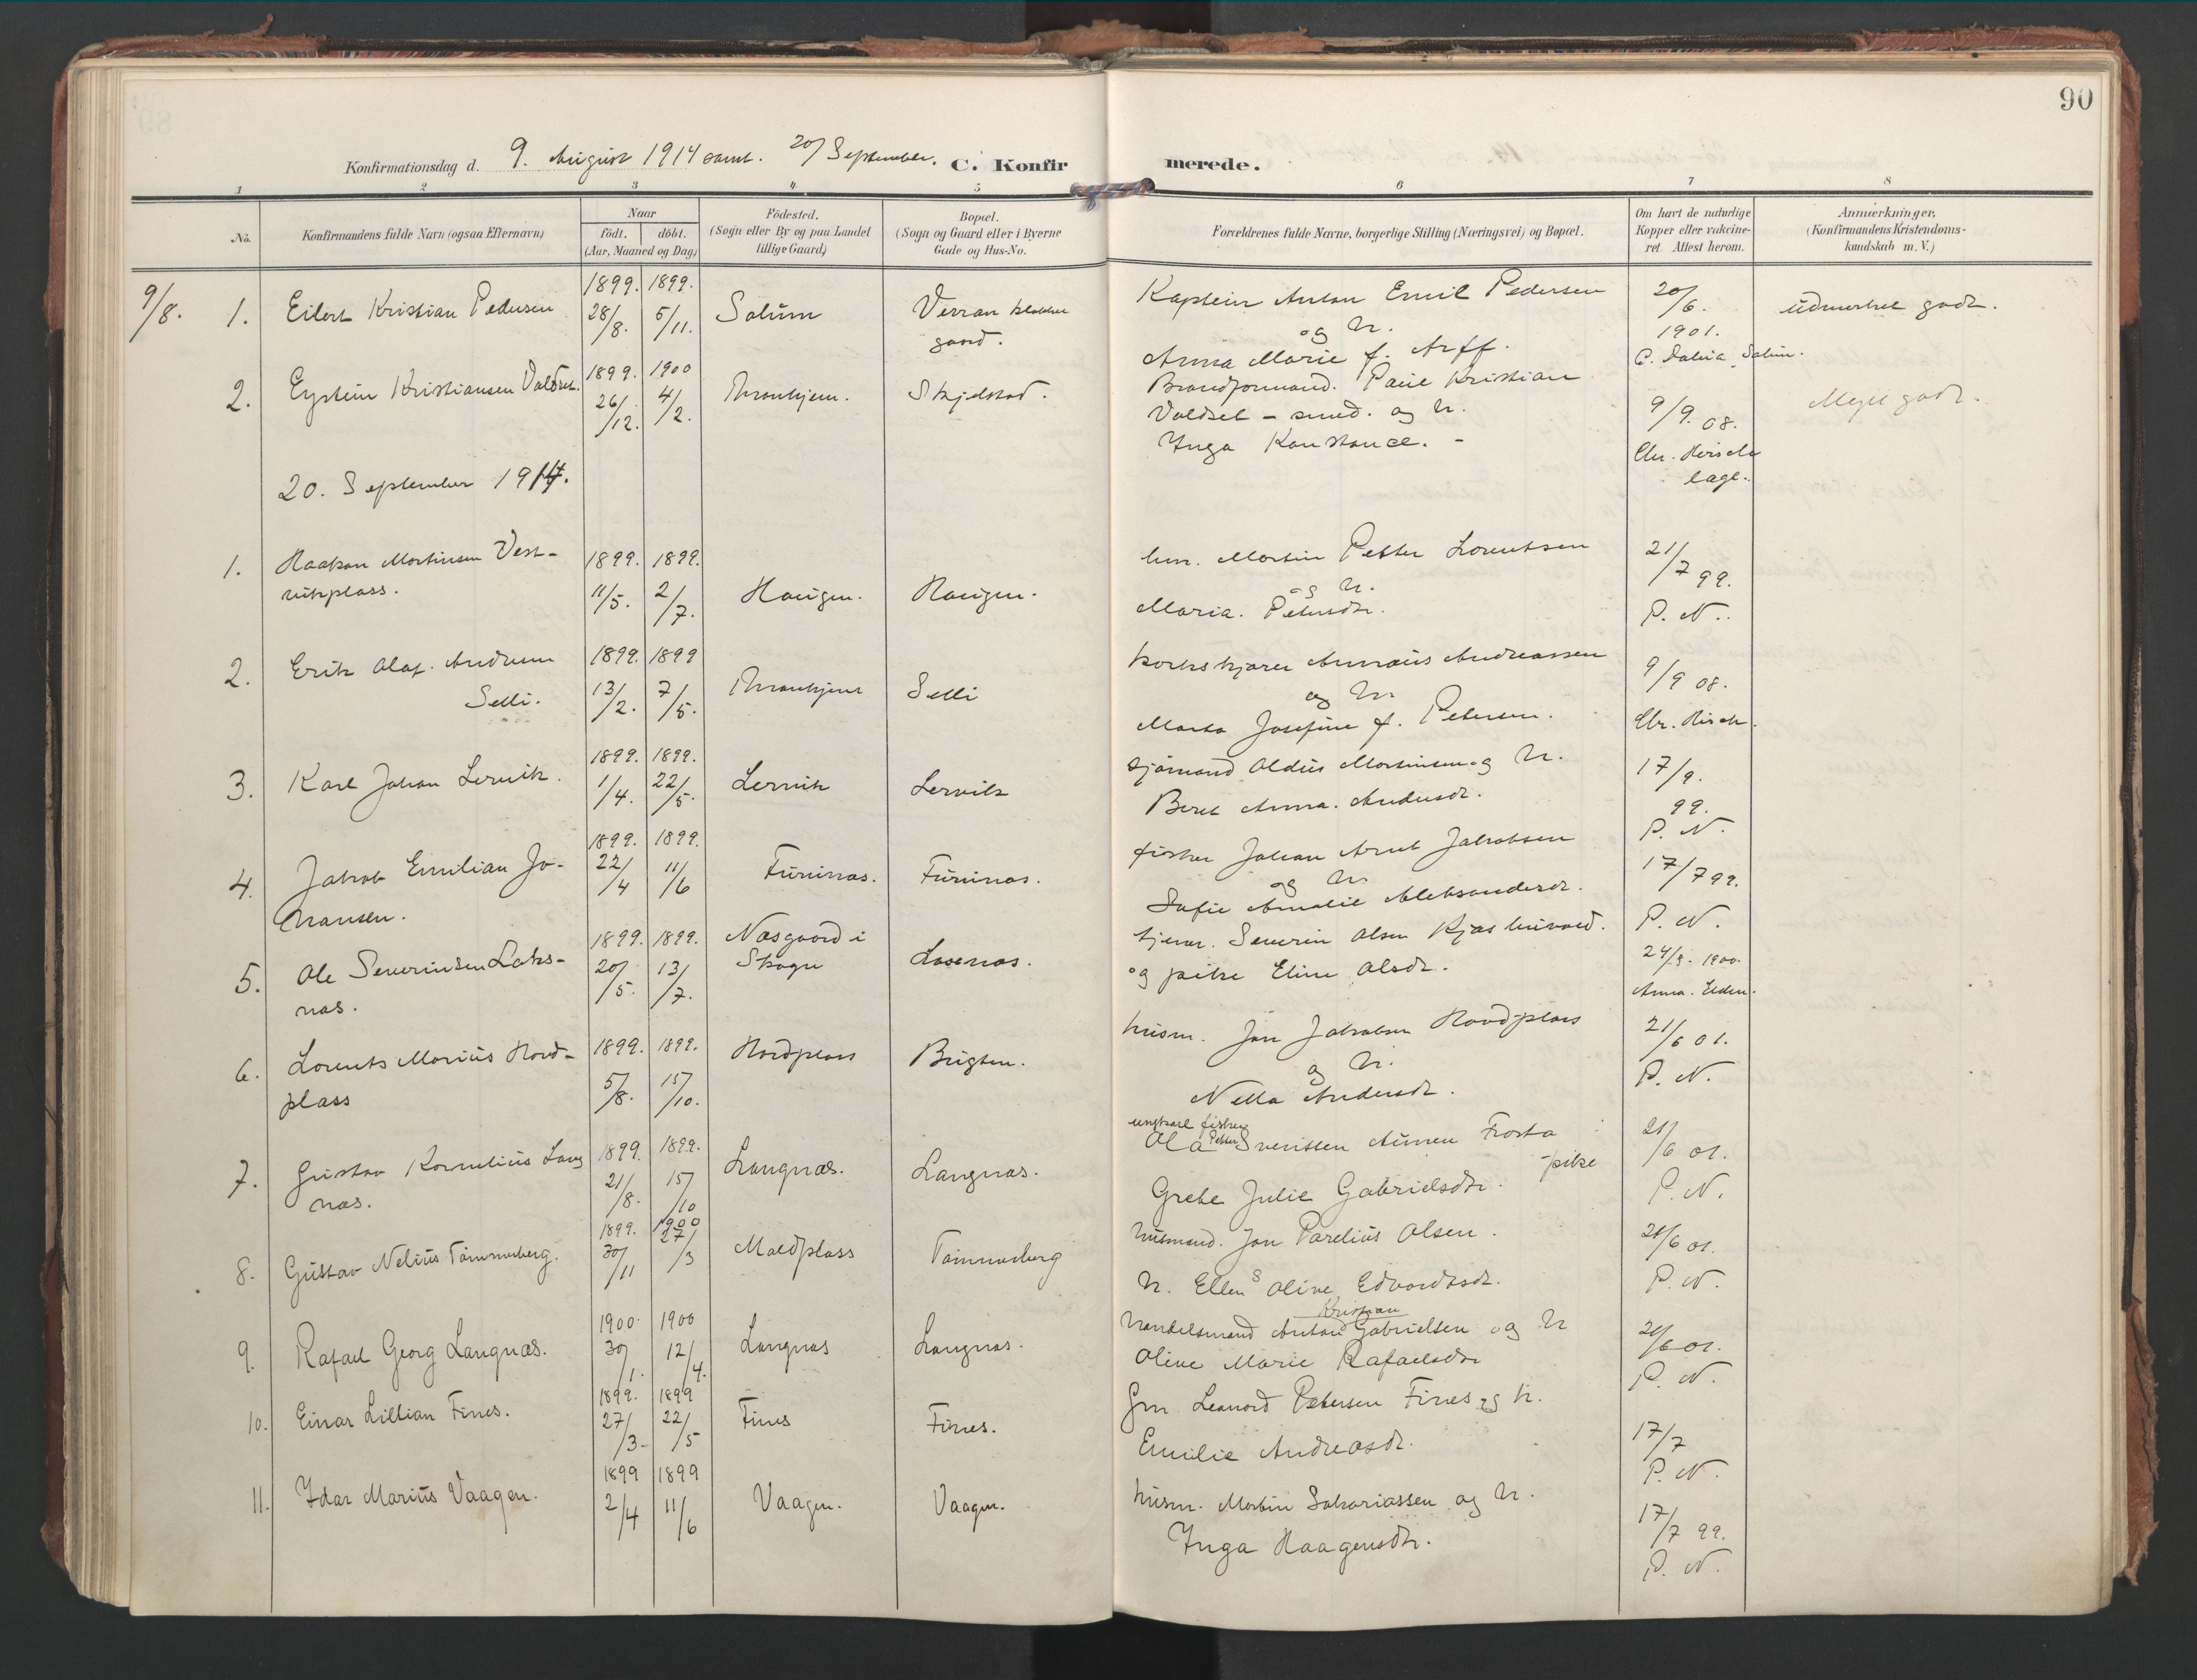 90
Konfirmationsdag d. 9. August 1914 samt. 20/ September. C. Konfirmerede.
1 2 3 4 5 6 7 8
No. Konfirmandens fulde Navn (ogsaa Efternavn) Naar født. døbt. (Aar, Maaned og Dag) Födested. (Sogn eller By og paa Landet tillige Gaard) Bopæl. (Sogn og Gaard eller i Byerne Gade og Hus-No. Forældrenes fulde Navne, borgerlige Stilling (Næringsvei) og Bopæl. Om havt de naturlige Kopper eller vakcineret. Attest herom. Anmærkninger. (Konfirmandens Kristendomskundskab m. V.)
9/8. 1. Eilert Kristian Pedersen 1899. 28/8. 1899. 5/11. Solum Verran gaard. Kaptein Anton Emil Pedersen
og h.
Anna Marie f. Arff. 20/6. 1901. udmerket godt.
2. Eystein Kristiansen Valdset. 1899. 26/12. 1900 4/2. Thronhjem. Skjelstad. Brandformand. Paul Kristian
Valdset – smed. og h.
Inga Konstance. – 9/9. 08.
Chr. Hirsch
læge. Meget godt.
20. September 1914.
1. Haakon Mortinsen Vest-
vikplass. 1899. 11/5. 1899. 2/7. Haugen. Haugen. hm. Mortin Petter Lorentsen
og h.
Maria. Petersdtr. 21/7 99.
P. N.
2. Erik Olaf. Andresen
Selli. 1899. 13/2. 1899 7/5. Thronhjem Selli korkskjærer Annæus Andreassen
og h.
Marta Josefine f. Petersen. 9/9 08.
Chr. Hirsch.
3. Karl Johan Lervik. 1899. 1/4. 1899. 22/5. Lervik Lervik sjømand Aldus Mortinsen og h.
Beret Anna. Andersdr. 17/9. 99.
P. N.
4. Jakob Emilian Jo-
hansen. 1899. 22/4 1899. 11/6 Furunæs. Furunæs. fisker Johan Arnt Jakobsen
og h.
Sofie Amalie Aleksandersdr. 17/7 99.
P. N.
5. Ole Severinsen Laks-
næs. 1899. 20/5. 1899. 13/7. Næsgaard i
Skogn Losenæs. tjener. Severin Olsen
og pike Eline Olsdr. 24/5. 1900.
Anna. Elden.
6. Lorents Marius Hord-
plass 1899. 5/8. 1899. 15/10. Hordplass Brigten. husm. Jon Jakobsen Hordplass
og h.
Nella Andersdr. 21/6 01.
P. N.
7. Gustav Kornelius Lang
næs. 1899. 21/8. 1899. 15/10 Langnæs. Langnæs. ungkarl fisker
Ola Petter Svenssen Aunen Frosta
– pike
Grete Julie Gabrielsdtr. 21/6 01.
P. N.
8. Gustav Nelius Tømmerberg. 1899. 30/11 1900 27/3 Moldplass Tømmerberg husmand. Jon Parelius Olsen.
h. Ellen Oline Edvardsdr. 21/6 01.
P. N.
9. Rafael Georg Langnæs. 1900. 30/1. 1900 12/4. Langnæs Langnæs. Handelsmand Anton Kristian Gabrielsen og h
Oline Marie Rafaelsdtr 21/6 01.
P. N.
10. Einar Lillian Fines. 1899. 27/3 – 1899 22/5 Fines Fines. Gm. Leonard Petersen Fines og h.
Emilie Andreasdr. 17/7
P. N.
11. Idar Marius Vaagen. 1899 2/4 1899 11/6 Vaagen. Vaagen. husm. Mortin Sakariassen og h.
Inga Haagensdtr. 17/7 99.
P. N.